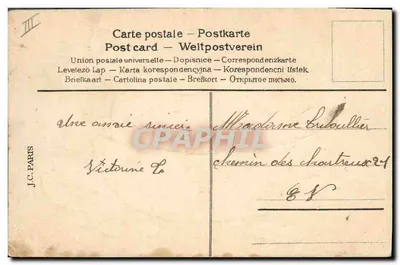 III
Carte postale – Postkarte
Post card – Weltpostverein
Union postale universelle – Dopisnice – Correspondenzkarte
Levelező Lap – Karta korespondencyjna – Korespondenční lístek
Briefkaart – Cartolina postale – Brefkort – Открытое письмо.
Une amie
Victorine
Madame
chemin des chartreux 21
J.C. PARIS
CPARHIL